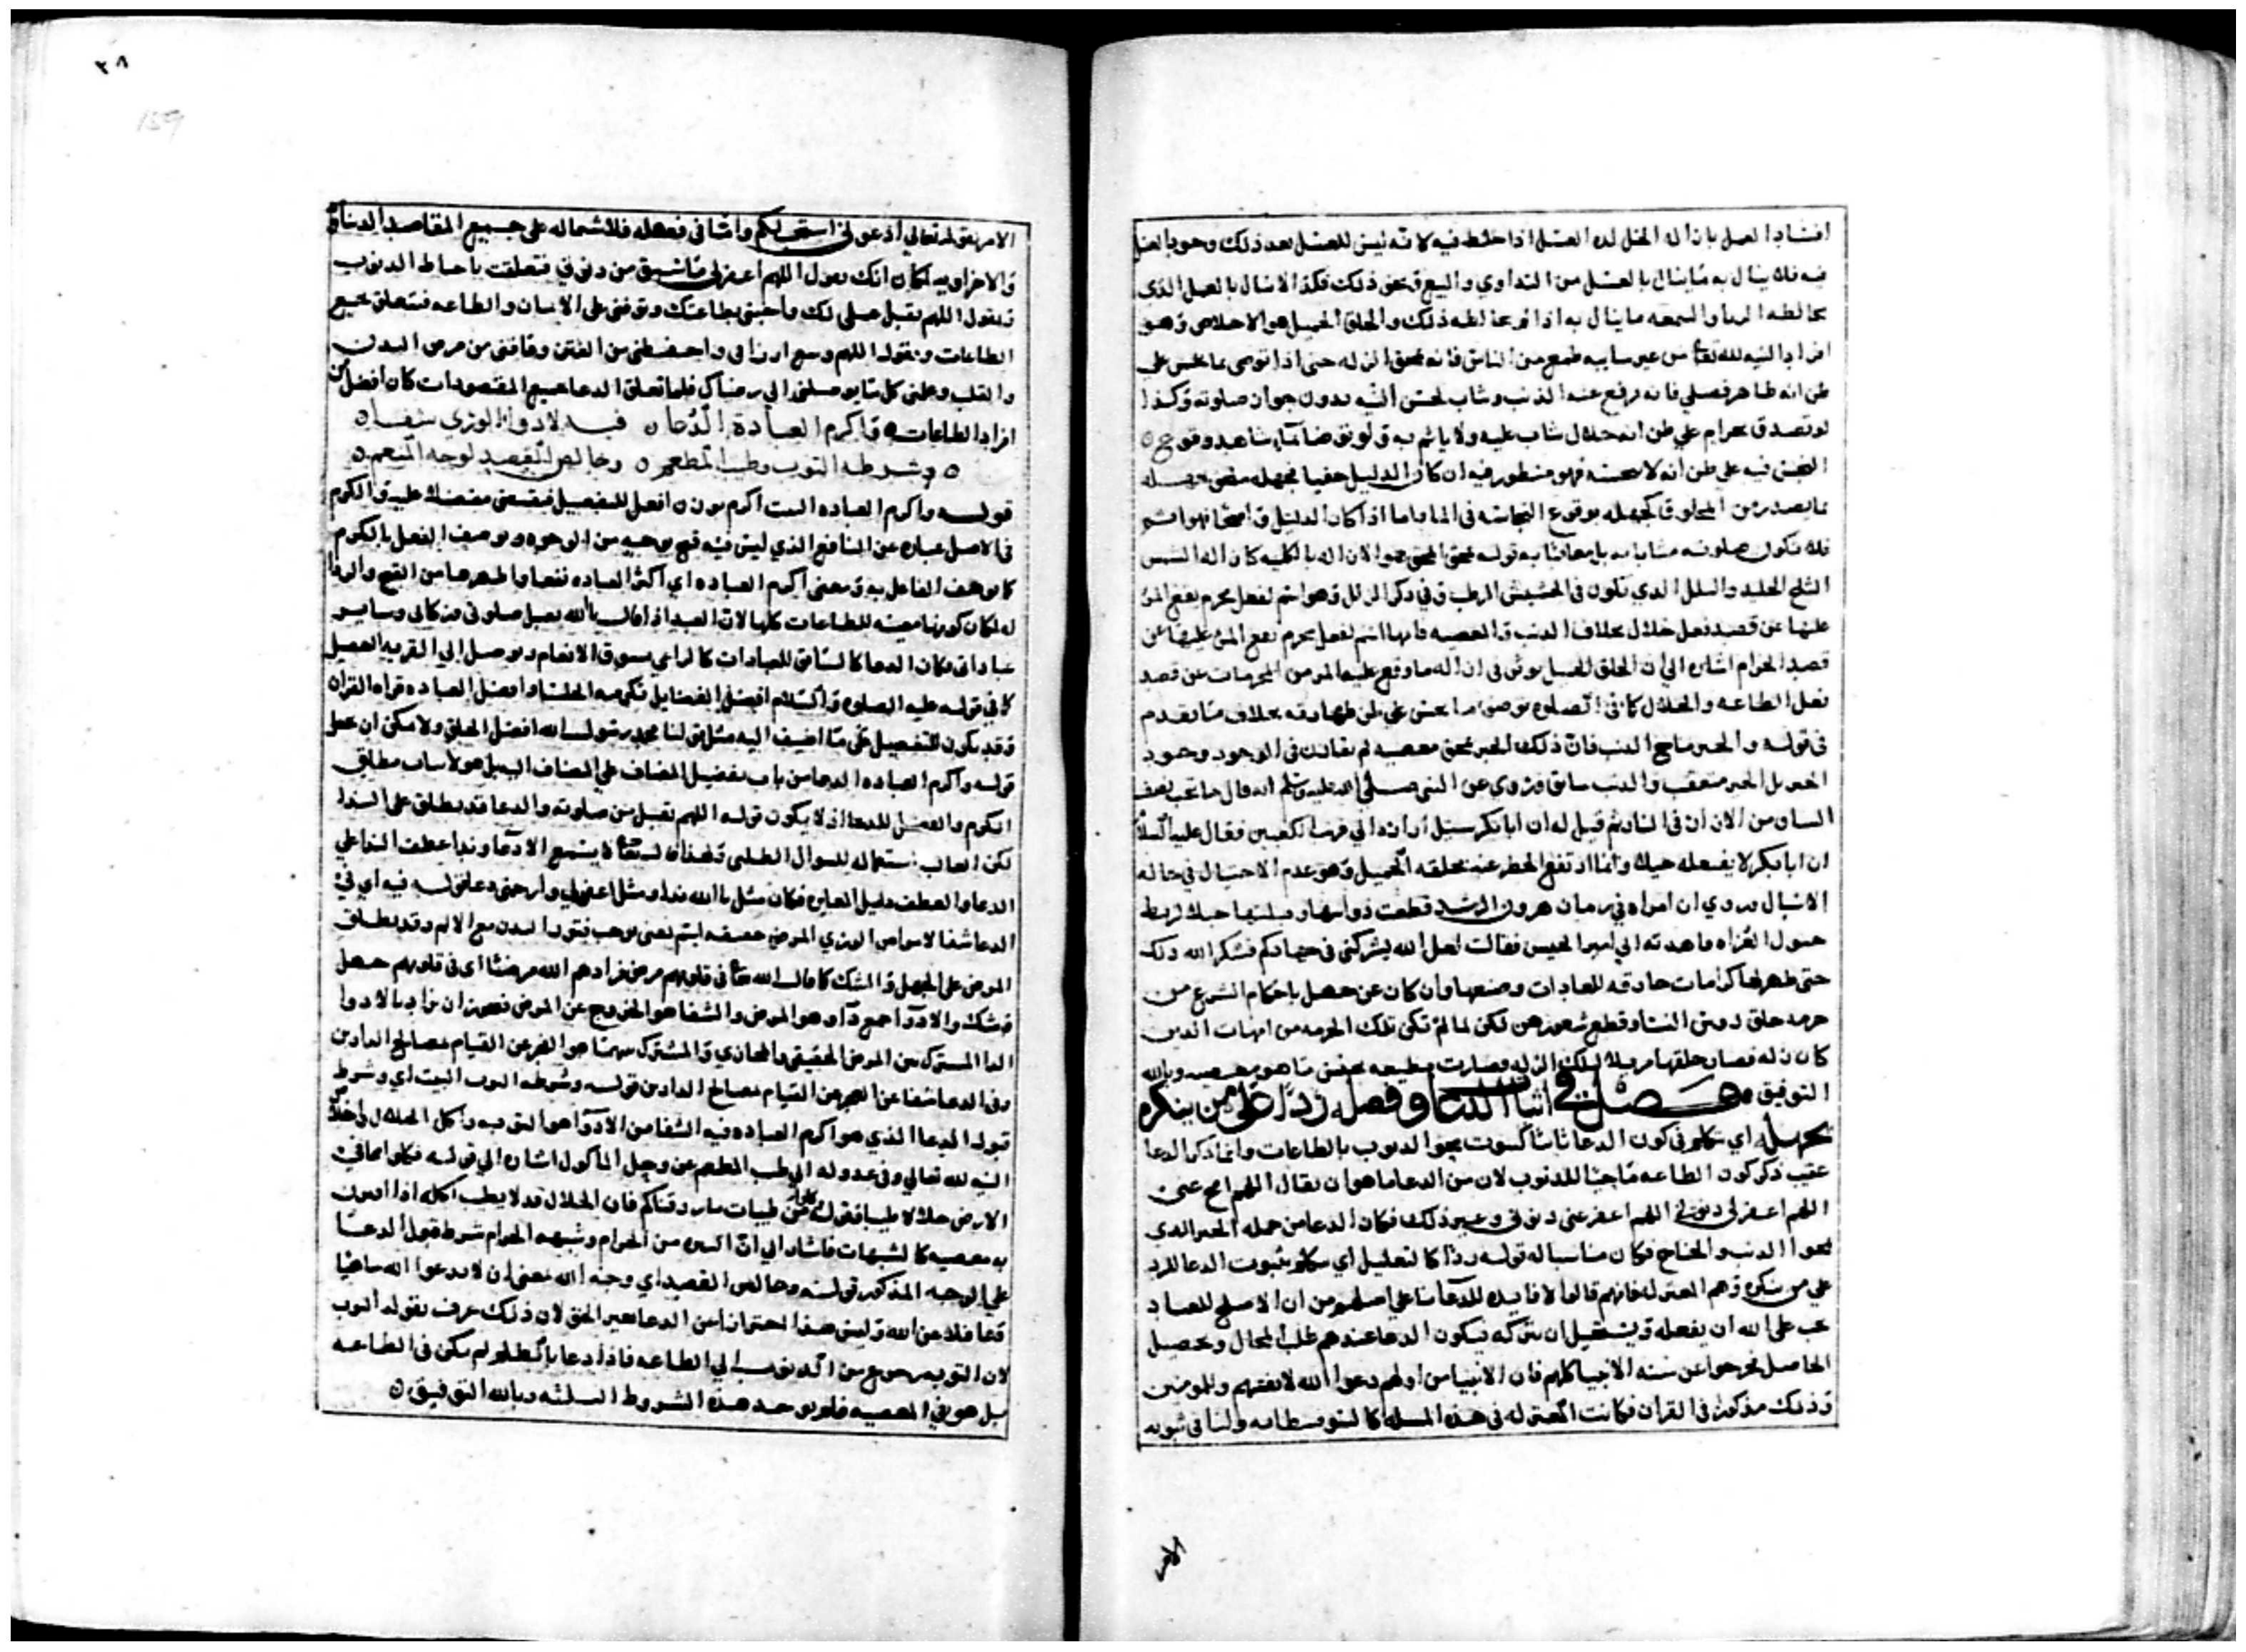 افساد العسل بازاله الخل لذه العسل اذا خلط فيه لانه ليس للعسل بعد ذلك وجوبا لعسل
فيه فلا ينال به ما ينال بالعسل من التداوي والبيع ونحو ذلك فكذا لا ينال بالعمل الذي
يخالطه الريا والسمعه ما ينال به اذا لم يخالطه ذلك والخلق الجميل هو الاخلاص وهو
افراد النيه لله تعالى من غير شايبه طمع من الناس فانه يمحق الزله حتى اذا توضى بما نجس على
ظن انه طاهر فصلي فانه يرفع عنه الذنب ويثاب لحسن النيه بدون جواز صلوته وكذا
لو تصدق بحرام علي ظن انه حلال يثاب عليه ولا ياثم به
النجس فيه على ظن انه لا ينجسه فهو منظور فيه ان كان الدليل خفيا
مما يصدر من المخلوق كجهله بوقوع النجاسه في الماء واما اذا كان الدليل واضحا فهو اثم
فلا تكون صلوته مثابا به بل معاقبا به قوله يمحق المحق هو الازاله بالكليه كازاله الشمس
الثلج الجليد والبلل الذي تكون في الحشيش الرطب وفي ذكر الزلل وهو اسم لفعل يحرم يقع المرء
عليها عن قصد فعل حلال بخلاف الذنب والمعصيه فانها اسم لفعل يحرم يقع المرء عليها عن
قصد الحرام اشاره الي ان الخلق الجميل يوثر في ازاله ما وقع عليه المرء من المحرمات عن قصد
فعل الطاعه والحلال كما في الصلوه بوضوء ما نجس علي ظن طهارته بخلاف ما تقدم
في قوله والخير ماحي الذنب فان ذلك الخير يمحق معصيه لم يقارنه في الوجود وجود
الخير بل الخير متعقب والذنب سابق وروي عن النبي صلى الله عليه وسلم انه قال ما تحت
الساق من الازار في النار ثم قيل له ان ابا بكر سبيل ازاره الي قريب الكعبين فقال عليه السلام
ان ابا بكر لا يفعله خيلاء وانما ارتفع الحظر عنه بخلقه الجميل وهو عدم الاختيال في حاله
الاسبال وروي ان امراه في زمان هرون الرشيد قطعت ذوايبها وفتلتها حبلا لربط
خيول الغزاه فاهدته الي امير الجيش فقالت لعل الله يشركني في جهادكم فشكر الله ذلك
حتى ظهر لها كرامات خارقه للعادات وصنعها وان كان عن جهل باحكام الشرع من
حرمه حلق روس النساء وقطع شعورهن لكن لما لم تكن تلك الحرمه من امهات الدين
كان زله فصار خلقها مزيلا لتلك الزله وصارت مطيعه بنفس ما هو معصيه وبالله
التوفيق فصل في اثبات الدعا وفصله ردا على من ينكره
بجهله اي نتكلم في كون الدعا ثابتا كثبوت محو الذنوب بالطاعات وانما ذكر الدعا
عقيب ذكر كون الطاعه ماحيا للذنوب لان من الدعا ما هو ان يقال اللهم امح عني
اللهم اغفر لي ذنوبي اللهم اعف عني ذنوبي وغير ذلك فكان الدعا من جمله الخير الذي
يمحوا الذنب والجناح فكان مناسبا له قوله ردا كالتعليل اي نتكلم بثبوت الدعا للرد
علي من ينكره وهم المعتزله فانهم قالوا لا فايده للدعا بنا علي اصلهم من ان الاصلح للعباد
يجب على الله ان يفعله ويستحيل ان يتركه فيكون الدعا عندهم طلب المحال وتحصيل
الحاصل فخرجوا عن سنه الانبيا كلهم فان الانبيا من اولهم دعوا الله لانفسهم وللمومنين
وذلك مذكور في القران فكانت المعتزله في هذه المسله كالسوفسطائيه ولنا في ثبوته
الامر
٣٨
159
الامر بقوله تعالي ادعوني استجب لكم واما في فضله فلاشتماله على جميع المقاصد الدينيه
والاخراويه لمكان انك تقول اللهم اغفر لي ما سبق من ذنوبي فتعلقت باحباط الذنوب
وتقول اللهم تقبل عملي لك واحيني بطاعتك وتوفني على الايمان والطاعه فتتعلق بجميع
الطاعات وتقول اللهم وسع ارزاقي واحفظني من الفتن وعافني من مرض البدن
والقلب وبلغني كل ما يوصلني الي رضاك فلما تعلق الدعا بجميع المقصودات كان افضل من
افراد الطاعات ٥ واكرم العباده الدعاء فيه لادواء الورى شفاء ٥
٥ وشرطه التوب وطيب المطعم ٥ وخالص القصد لوجه المنعم ٥
قوله واكرم العباده البيت اكرم بوزن افعل للتفضيل فيقتضي مفضلا عليه والكرم
في الاصل عباره عن المنافع الذي ليس فيه قبح بوجه من الوجوه ويوصف الفعل بالكرم
كما يوصف الفاعل به ومعنى اكرم العباده اي اكثر العباده نفعا واطهرها من القبح
لمكان كونها معينه للطاعات كلها لان العبد اذا قال يا الله تقبل صلوتي وزكاتي وساير
عباداتي فكان الدعا كالسابق للعبادات كالراعي يسوق الانعام ويوصل الي القربه
كما في قوله عليه الصلوه والسلام افضل الفضايل تكرمه الجلسا وافضل العباده قراه القران
وقد يكون للتفضيل على ما اضيف اليه مثل قولنا محمد رسول الله افضل الخلق ولا يمكن ان يجعل
قوله واكرم العباده الدعا من باب تفضيل المضاف على المضاف اليه بل هو لاثبات مطلق
الكرم والفضل للدعا اذ لا يكون قوله اللهم تقبل من صلوته والدعا قد يطلق على الندا
لكن الغالب استعماله للسوال الطلبي ولهذا قال تعالى لا يسمع الا دعاء ونداء عطف الندا علي
الدعا والعطف دليل المغايره فكان مثل يا الله نداء ومثل اغفر لي وارحمني دعا قوله فيه اي في
الدعا شفا لامراض الورى المرض حقيقه اسم لمعنى يوجب فتور البدن مع الالم وقد يطلق
المرض على الجهل والشك كما قال الله تعالى في قلوبهم مرض فزادهم الله مرضا اي في قلوبهم جهل
وشك والادواء جمع داء وهو المرض والشفا هو الخروج عن المرض فيجوز ان يراد بالادوا
الداء المشترك بين المرض الحقيقي والمجازي والمشترك بينهما هو العجز عن القيام بمصالح الدارين
وفي الدعا شفا عن العجز عن القيام بمصالح الدارين قوله وشرطه التوب البيت اي وشرط
قبول الدعا الذي هو اكرم العباده فيه الشفا من الادواء هو التوبه واكل الحلال
النيه لله تعالي وفي عدوله الي طيب المطعم عن وحل الماكول اشاره الي قوله فكلوا مما في
الارض حلالا طيبا وقوله كلوا من طيبات ما رزقناكم فان الحلال قد لا يطيب اكله اذا
به معصيه كالشبهات فاشار الي ان التحرز من الحرام وشبهه الحرام شرط قبول الدعا
علي الوجه المذكور قوله وخالص القصد اي وجه الله بمعنى ان لا يدعوا الله ساهيا
وغافلا عن الله وليس هذا احترازا عن الدعا لغير الحق لان ذلك عرف بقوله التوب
لان التوبه رجوع من الذنوب الي الطاعه فاذا دعا بالظلم لم يكن في الطاعه
بل هو في المعصيه فلم يوجد هذه الشروط الثلثه وبالله التوفيق ٥